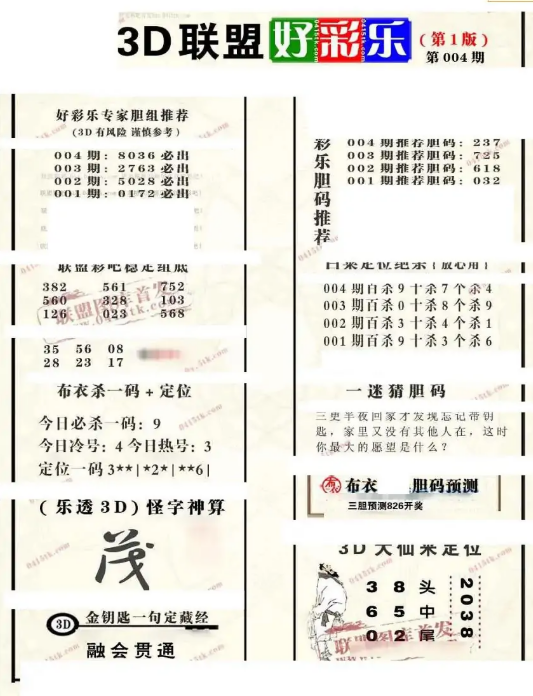 3D联盟好彩乐
(第1版)
第004期
好彩乐专家胆组推荐
(3D有风险 谨慎参考)
004期:8036必出
003期:2763必出
002期:5028必出
001期:0172必出
联盟彩吧稳定组底
382 561 752
560 328 103
126 023 568
35 56 08
28 23 17
布衣杀一码+定位
今日必杀一码:9
今日冷号:4今日热号:3
定位一码3**|*2*|**6|
(乐透3D)怪字神算
茂
3D 金钥匙一句定藏经
融会贯通
彩乐胆码推荐
004期推荐胆码:237
003期推荐胆码:725
002期推荐胆码:618
001期推荐胆码:032
白菜定位绝杀(放心用)
004期百杀9十杀7个杀4
003期百杀0十杀8个杀9
002期百杀3十杀4个杀1
001期百杀9十杀3个杀6
一迷猜胆码
三更半夜回家才发现忘记带钥
匙,家里又没有其他人在,这时
你最大的愿望是什么?
布衣 胆码预测
三胆预测826开奖
3D大仙来定位
3 8 头
6 5 中
0 2 尾
2038